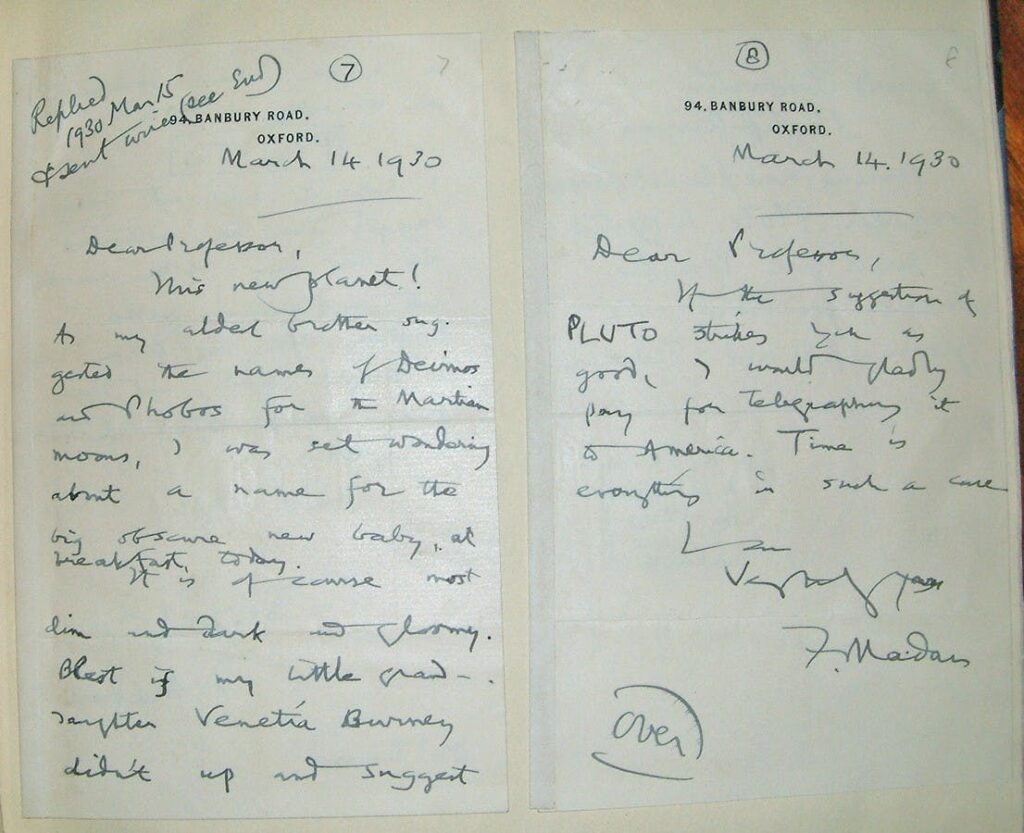 Replied
1930 Mar 15
& sent wire (see End)
7
7
94, BANBURY ROAD,
OXFORD.
March 14 1930
Dear Professor,
This new planet!
As my eldest brother sug-
gested the names of Deimos
and Phobos for the Martian
moons, I was set wondering
about a name for the
big obscure new baby, at
breakfast, today.
It is of course most
dim and dark and gloomy.
Blest if my little grand-
daughter Venetia Burney
didn't up and suggest
8
8
94, BANBURY ROAD,
OXFORD.
March 14. 1930
Dear Professor,
If the suggestion of
PLUTO strikes you as
good, I would gladly
pay for telegraphing it
to America. Time is
everything in such a case
I am
Very truly yours
F. Madan
Over